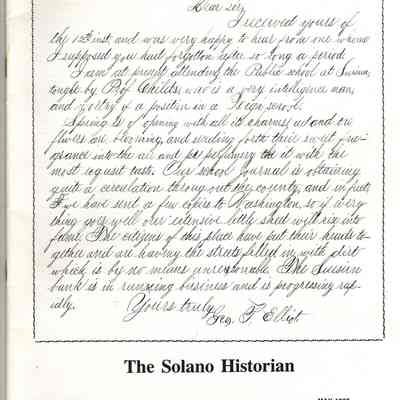 Dear Sir,
I received yours of
the 12th inst, and was very happy to hear from one whom
I supposed you had forgotten after so long a period.
I am at present attending the Public school at Suisun,
taught by Prof Childs who is a very intelligence man,
and worthy of a position in a High school.
Spring is of opening with all its charms, and our
flowers are blooming, and sending forth their sweet fra-
grance into the air and perfumery the it with the
most exquset taste. Our school Journal is obtaining
quite a circulation throug out the county, and in fact,
we have sent a few copies to Washington, so if every
thing goes well our extensive little shed will rise into
fame. The citizens of this place have put their heads to-
gether and are having the streets filled in with dirt
which is by no means unreasonable. The Suisun
bank is in running business and is progressing rap-
idly.
Yours truly
Geo. F. Elliot.
The Solano Historian